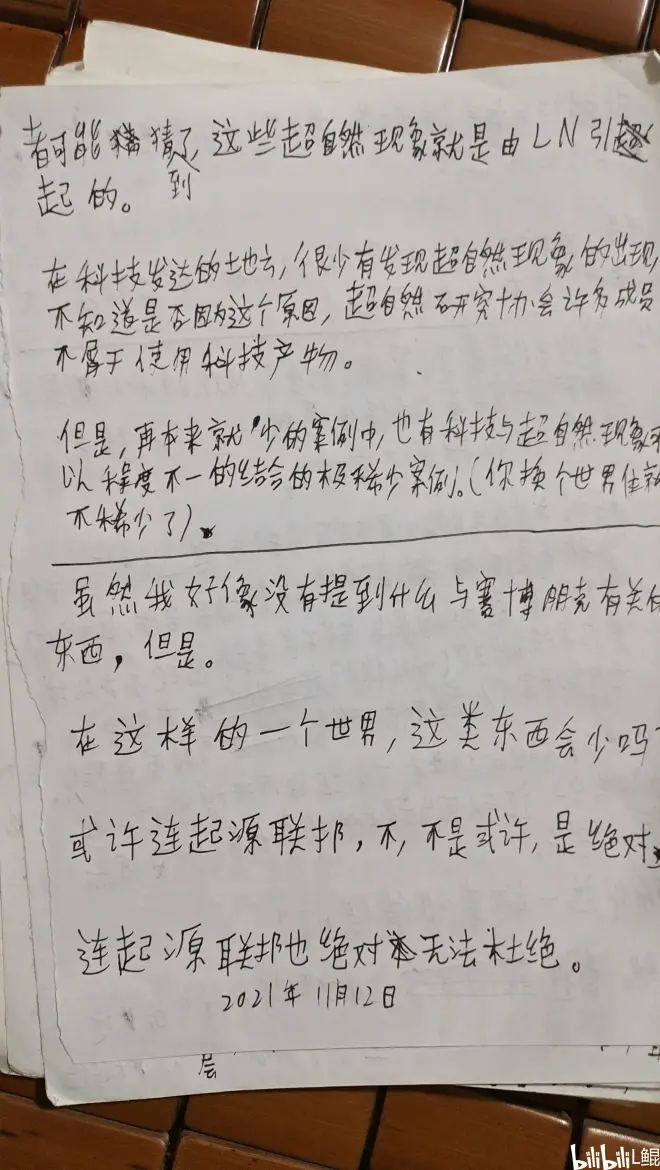 者可能猜了,这些超自然现象就是由LN引
到
起的。
在科技发达的地方,很少有发现超自然现象的出现,
不知道是否因为这个原因,超自然研究协会许多成员
不屑于使用科技产物。
但是,再本来就少的案例中,也有科技与超自然现象
以程度不一的结合的极稀少案例。(你换个世界住就
不稀少了)。
虽然我好像没有提到什么与赛博朋克有关的
东西,但是。
在这样的一个世界,这类东西会少吗?
或许连起源联邦,不,不是或许,是绝对,
连起源联邦也绝对无法杜绝。
2021年11月12日
层
bilibili L鲲